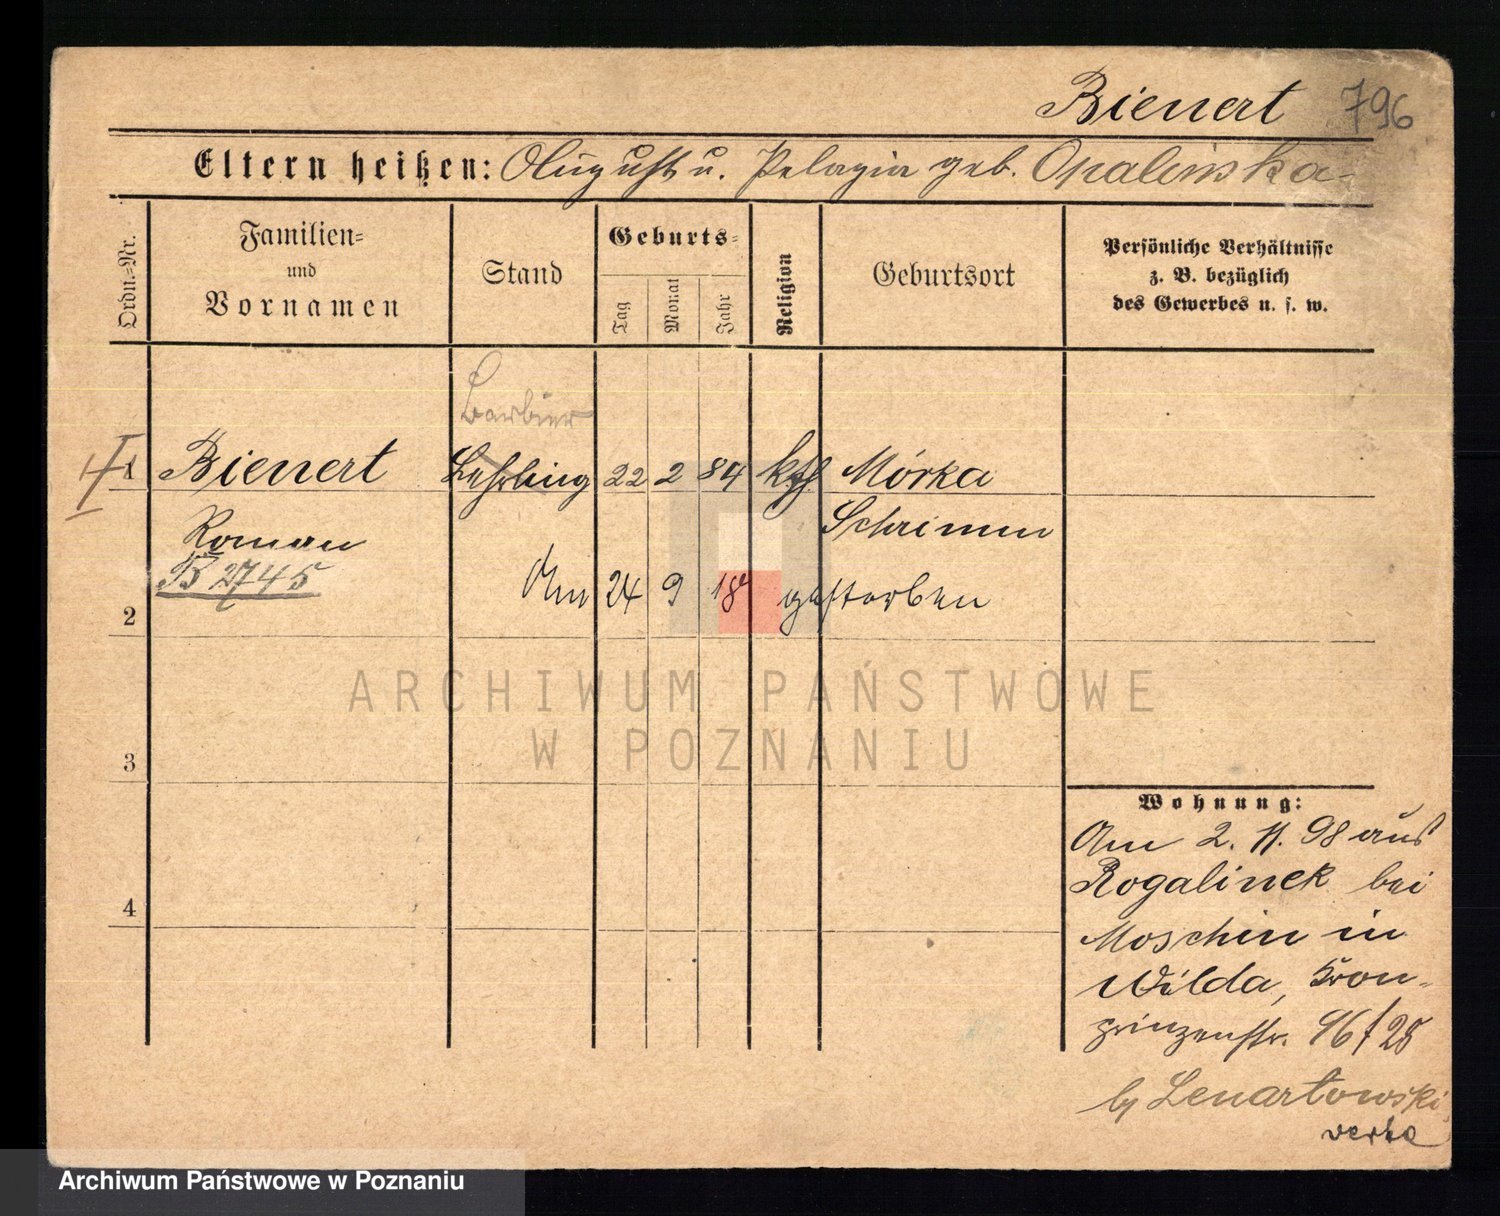 Bienert 796
Eltern heißen: August u. Pelagia geb. Opalinska
Ordn.=Nr.
Familien=
und
Vornamen
Stand
Geburts=
Tag
Monat
Jahr
Religion
Geburtsort
Persönliche Verhältnisse
z. B. bezüglich
des Gewerbes u. s. w.
Barbier
1 Bienert Lehrling 22 2 84 kth Mórka
Schrimm
Roman
B 2745
2 Am 24 9 18 gestorben
3
4
Wohnung:
Am 2. 11. 98 aus
Rogalinek bei
Moschin in
Wilda, Kron-
prinzenstr. 96/28
by Lenartowski
ARCHIWUM PAŃSTWOWE
W POZNANIU
Archiwum Państwowe w Poznaniu